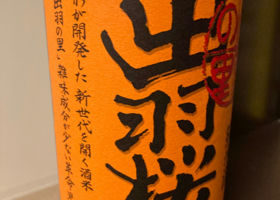 の里
出羽桜
が開発した 新世代を開く酒米
出羽の里」雑味成分が少ない革命